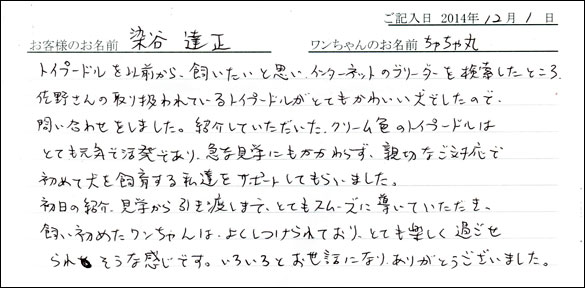 ご記入日 2014年12月1日
お客様のお名前 染谷 達正 ワンちゃんのお名前 ちゃちゃ丸
トイプードルを以前から、飼いたいと思い、インターネットのブリーダーを検索したところ、
佐野さんの取り扱われているトイプードルがとてもかわいい犬でしたので、
問い合わせをしました。紹介していただいた、クリーム色のトイプードルは
とても元気で活発であり、急な見学にもかかわらず、親切なご対応で
初めて犬を飼育する私達をサポートしてもらいました。
初日の紹介、見学から引き渡しまで、とてもスムーズに導いていただき、
飼い初めたワンちゃんは、よくしつけられており、とても楽しく過ごせ
られそうな感じです。いろいろとお世話になり、ありがとうございました。